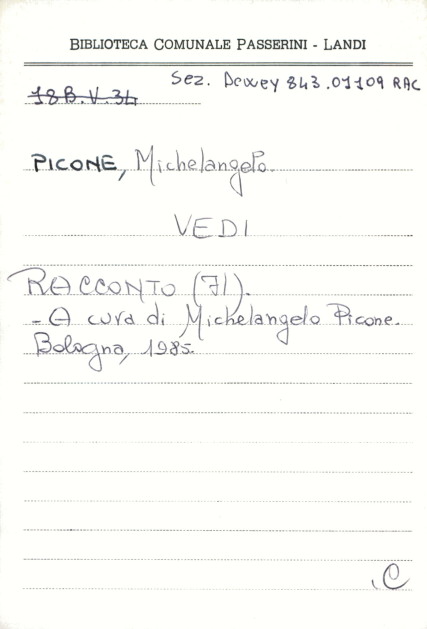 BIBLIOTECA COMUNALE PASSERINI - LANDI
Sez. Dewey 843.01109 RAC
18B.V.34
PICONE, Michelangelo.
VEDI
RACCONTO (Il).
- A cura di Michelangelo Picone.
Bologna, 1985.
C